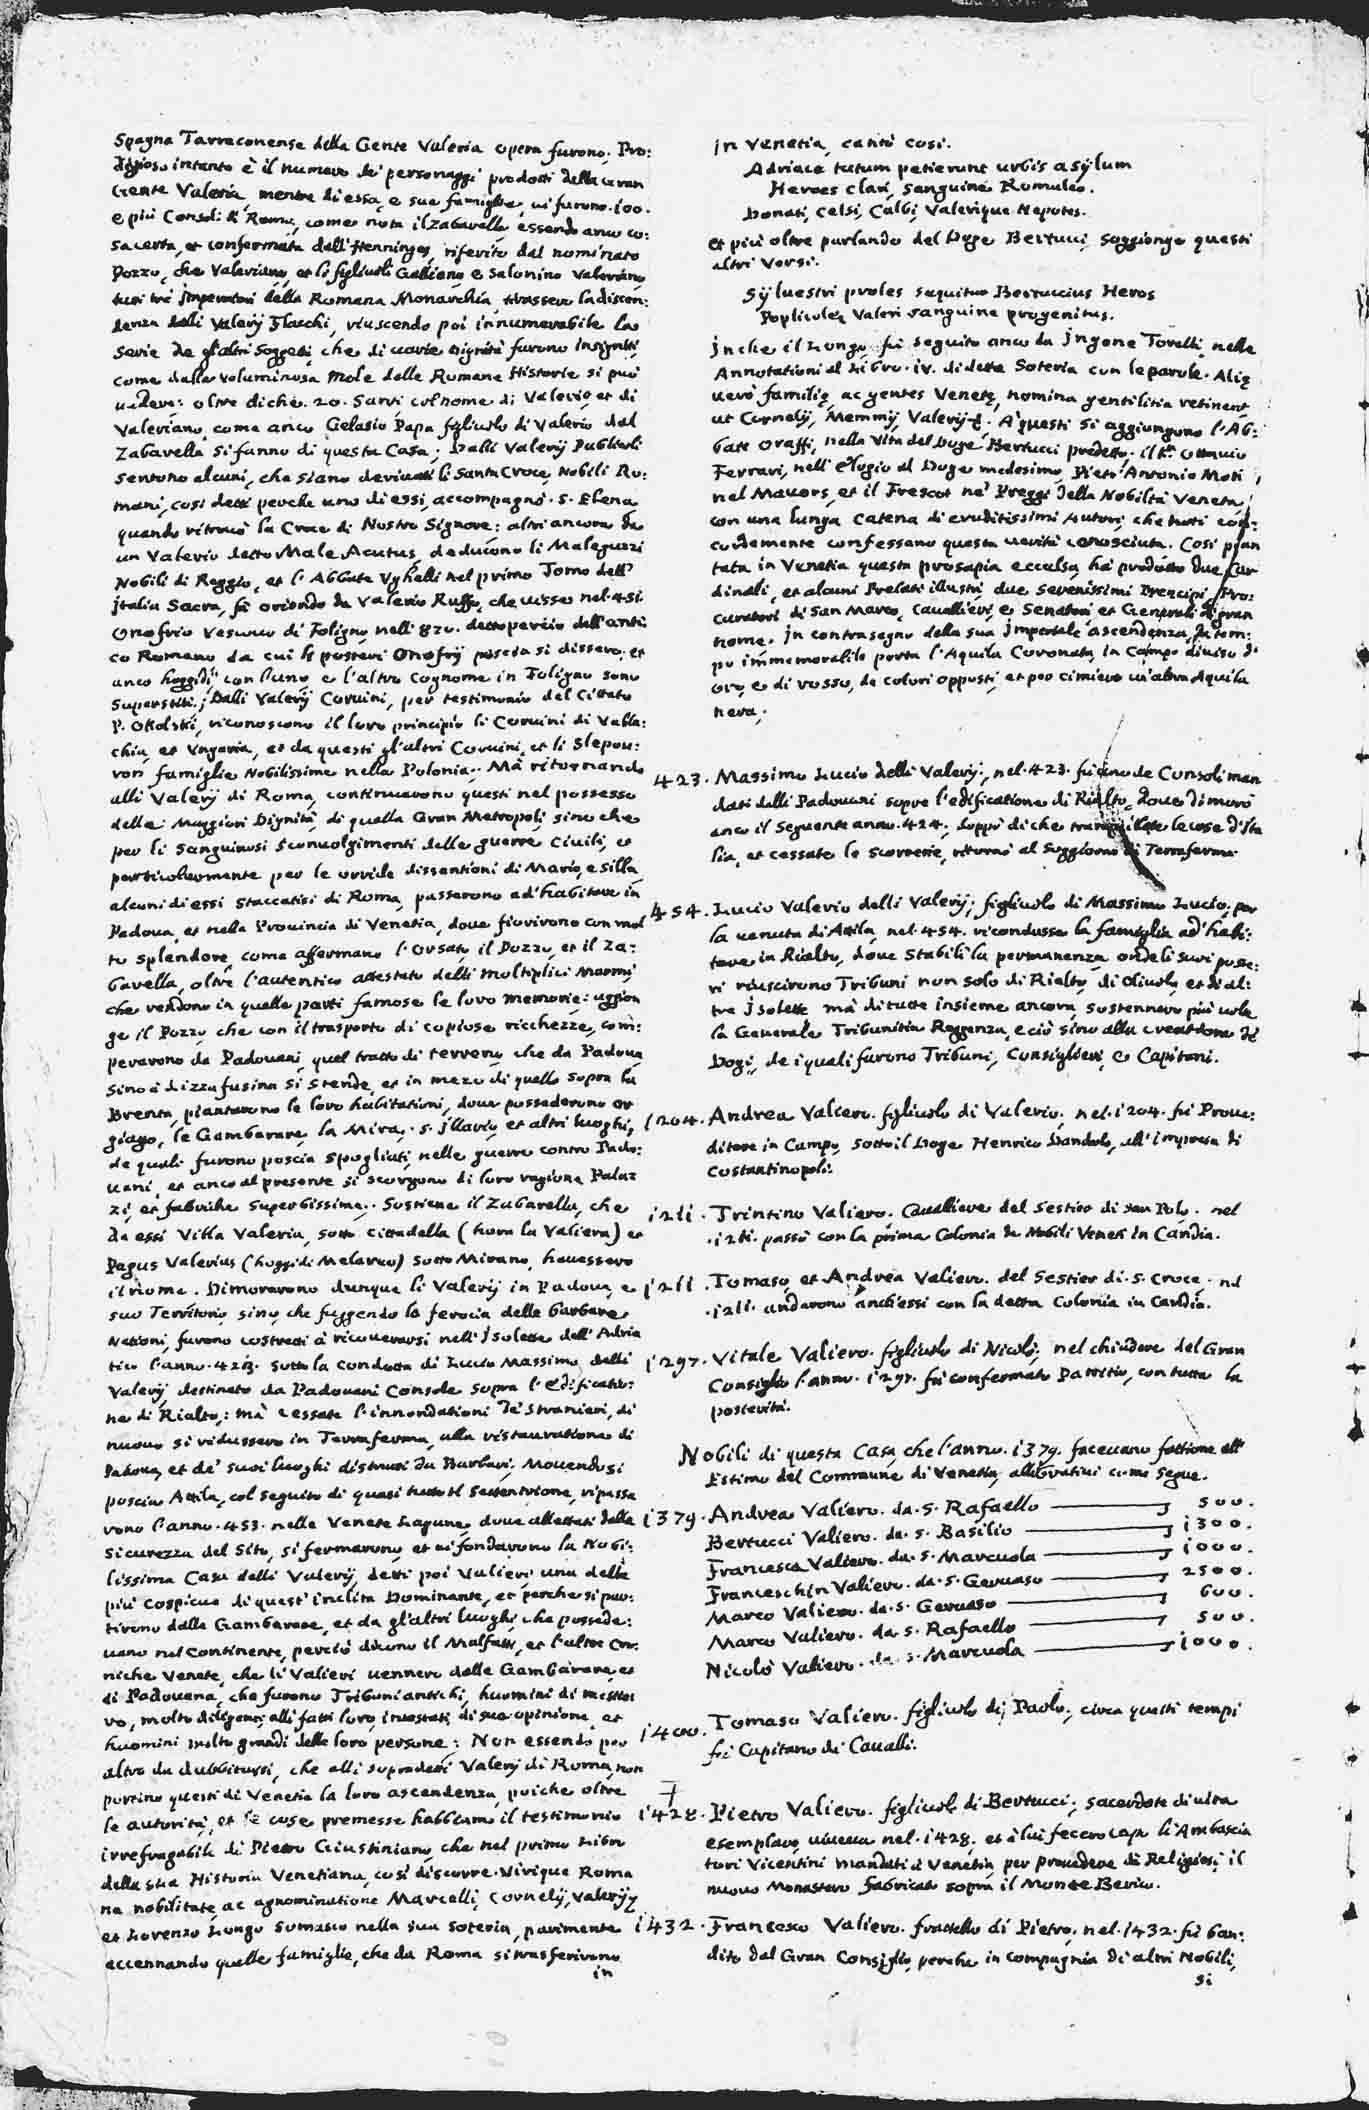 Spagna Tarraconense della Gente Valeria opera furono. Pro:
digioso intanto è il numero di personaggi prodotti della Gran
Gente Valeria, mentre di essa, e sue famiglie, ui furono .100.
e più Consoli di Roma, come nota il Zabarella essendo anco co:
sa certa, et confermata dall'Henninges, riferito dal nominato
Pozzo, che Valeriano, et li figliuoli Galieno, e Salonino Valeriano
tutti trè Jmperatori della Romana Monarchia, trassero la discen:
denza dalli Valerij Flacchi, riuscendo poi innumerabile la
serie de gl'altri Soggetti, che di uarie Dignità furono insigniti,
come dalla voluminosa Mole delle Romane Historie si può
uedere: oltre di che .20. Santi col nome di Valerio, et di
Valeriano, come anco Gelasio Papa figliuolo di Valerio dal
Zabarella si fanno di questa Casa. Dalli Valerij Publicoli
sentono alcuni, che siano deriuati li Santa Croce, Nobili Ro:
mani, così detti perche uno di essi, accompagnò .S. Elena
quando ritrouò la Croce di Nostro Signore: altri ancora da
un Valerio detto Male Acutus, deducono li Maleguzzi
Nobili di Reggio, et l'Abbate Vghelli nel primo Tomo dell'
Jtalia Sacra, fà oriondo da Valerio Ruffo, che uisse nel .451.
Onofrio Vescouo di Foligno nell'870. detto perciò dall'anti:
co Romano da cui li posteri Onofrij poscia si dissero, et
anco hoggidì con l'uno, e l'altro Cognome in Foligno sono
superstiti. Dalli Valerij Coruini, per testimonio del Cittato
P. Okolski, riconoscono il loro principio li Coruini di Valla:
chia, et Vngaria, et da questi gl'altri Coruini, et li Slepou:
ron famiglie Nobilissime nella Polonia. Mà ritornando
alli Valerij di Roma, continuarono questi nel possesso
delle Maggiori Dignità, di quella Gran Metropoli, sino che
per li sanguinosi sconuolgimenti delle guerre Ciuili, et
particolarmente per le orride dissentioni di Mario, e Silla,
alcuni di essi staccatisi di Roma, passarono ad habitare in
Padoua, et nella Prouincia di Venetia, doue fiorirono con mol
to splendore, come affermano l'Orsato, il Pozzo, et il Za:
barella, oltre l'autentico attestato delli moltiplici Marmi,
che rendono in quelle parti famose le loro memorie: aggion
ge il Pozzo, che con il trasporto di copiose ricchezze, com:
perarono da Padouani, quel tratto di terreno, che da Padoua
sino à Lizza fusina si stende, et in mezo di quello sopra la
Brenta, piantarono le loro habitationi, doue possederono Or
giago, le Gambarare, la Mira, .S. Jllario, et altri luoghi,
de quali furono poscia spogliati, nelle guerre contro Pado:
uani, et anco al presente si scorgono di loro ragione Palaz
zi, et fabriche superbissime. Sostiene il Zabarella, che
da essi Villa Valeria, sotto Cittadella (hora la Valiera) et
Pagus Valerius (hoggidì Melareo) sotto Mirano, hauessero
il nome. Dimorarono dunque li Valerij in Padoua, e
suo Territorio, sino, che fuggendo la ferocia delle barbare
Nationi, furono costretti à ricouerarsi nell'Jsolette dell'Adria
tico l'anno .423. sotto la condotta di Lucio Massimo delli
Valerij, destinato da Padouani Console sopra l'edificatio:
ne di Rialto,: mà cessate l'innondationi de' stranieri, di
nuouo si ridussero in Terraferma, alla ristauratione di
Padoua, et de' suoi luoghi distrutti da Barbari. Mouendosi
poscia Attila, col seguito di quasi tutto il Settentrione, ripassa
rono l'anno .453. nelle Venete Lagune, doue allettati dalla
sicurezza del sito, si fermarono, et ui fondarono la Nobi:
lissima Casa delli Valerij, detti poi Valieri una delle
più cospicue di quest'inclita Dominante, et perche si par:
tirono dalle Gambarare, et da gl'altri luoghi che possede:
uano nel Continente, perciò dicono il Malfatti, et l'altre Cro:
niche Venete, che li Valieri uennero dalle Gambarare, et
di Padouana, che furono Tribuni antichi, huomini di mestie
ro, molto diligenti alli fatti loro, intestati di sua opinione, et
huomini molto grandi delle loro persone: Non essendo per
altro da dubbitarsi, che alli sopradetti Valerij di Roma, non
portino questi di Venetia la loro ascendenza, poiche oltre
le autorità, et le cose premesse habbiamo il testimonio
irrefragabile di Pietro Giustiniano, che nel primo Libro
della sua Historia Venetiana, così discorre. Virique Roma
na nobilitate, ac agnominatione Marcelli, Cornelij, Valerijq
et Lorenzo Longo Somasco nella sua Soteria, parimente
accennando quelle famiglie, che da Roma si trasferirono
in
in Venetia, cantò così.
Adriacæ tutum petierunt urbis asylum
Heroes clari, sanguine Romuleo.
Donati, Celsi, Calbi, Valerique Nepotes.
et più oltre parlando del Doge Bertucci, soggionge questi
altri Versi.
Syluestri proles sequitur Bertuccius Heros
Poplicolæ Valeri sanguine progenitus.
Jn che il Longo fù seguito anco da Jngone Torelli, nelle
Annotationi al Libro .iv. di detta Soteria con le parole. Aliq
uerò familię ac gentes Venetę, nomina gentilitia retinent
ut Cornelij, Memmij, Valerij &. A questi si aggiungono l'Ab:
bate Oraffi, nella Vita del Doge Bertucci predetto, il P. Ottauio
Ferrari, nell'Elogio al Doge medesimo, Pietr'Antonio Moti
nel Mauors, et il Frescot ne' Preggi della Nobiltà Veneta,
con una lunga Catena di eruditissimi Autori, che tutti con:
cordemente confessano questa uerità conosciuta. Così pian
tata in Venetia questa prosapia eccelsa, hà prodotto due Car
dinali, et alcuni Prelati illustri, due Serenissimi Prencipi, Pro:
curatori di San Marco, Cauallieri, e Senatori, et Generali di gran
nome. Jn contrasegno della sua Jmperiale ascendenza, da tem:
po immemorabile porta l'Aquila Coronata, in Campo diuiso di
oro, e di rosso, de colori opposti, et per cimiero un'altra Aquila
nera.
423. Massimo Lucio delli Valerij, nel .423. fù uno de Consoli man
dati dalli Padouani sopra l'edificatione di Rialto, doue dimorò
anco il seguente anno .424. doppò di che tranquillate le cose d'Ita
lia, et cessate le scorrerie, ritornò al soggiorno di Terraferma.
454. Lucio Valerio delli Valerij, figliuolo di Massimo Lucio, per
la uenuta di Attila, nel .454. ricondusse la famiglia ad habi:
tare in Rialto, doue stabilì la permanenza, onde li suoi poste:
ri riuscirono Tribuni non solo di Rialto, di Oliuolo, et di al:
tre Jsolette mà di tutte insieme ancora, sostennero più uolte
la Generale Tribunitia Reggenza, e ciò sino alla creatione de
Dogi, de i quali furono Tribuni, Consiglieri, e Capitani.
1204. Andrea Valiero. figliuolo di Valerio, nel .1204. fù Proue:
ditore in Campo, sotto il Doge Henrico Dandolo, all'impresa di
Costantinopoli.
1211. Trintino Valiero. Cauallier del Sestier di San Polo. nel
.1211. passò con la prima Colonia de Nobili Veneti in Candia.
1211. Tomaso, et Andrea Valiero. del Sestier di .S. Croce. nel
.1211. andarono anch'essi con la detta Colonia in Candia.
1297. Vitale Valiero. figliuolo di Nicolò, nel chiudere del Gran
Consiglio l'anno .1297. fù confermato Patritio, con tutta la
posterità.
Nobili di questa Casa, che l'anno .1379. faceuano fattione all'
Estimo del Commune di Venetia, allibratiui come segue.
1379. Andrea Valiero. da .S. Rafaello 500.
Bertucci Valiero. da .S. Basilio 1300.
Francesca Valiero. da .S. Marcuola 1000.
Franceschin Valiero. da .S. Geruaso 2500.
Marco Valiero. da .S. Geruaso 600.
Marco Valiero. da .S. Rafaello 500.
Nicolò Valiero. da .S. Marcuola 1000.
1400. Tomaso Valiero. figliuolo di Paolo, circa questi tempi
fù Capitano di Caualli.
1428. Pietro Valiero. figliuolo di Bertucci, sacerdote di uita
esemplare, uiueua nel .1428. et à lui fecero capo li Ambascia
tori Vicentini mandati à Venetia, per prouedere di Religiosi, il
nuouo Monastero fabricato sopra il Monte Berico.
1432. Francesco Valiero. fratello di Pietro, nel .1432. fù ban:
dito dal Gran Consiglio, perche in compagnia di altri Nobili,
si